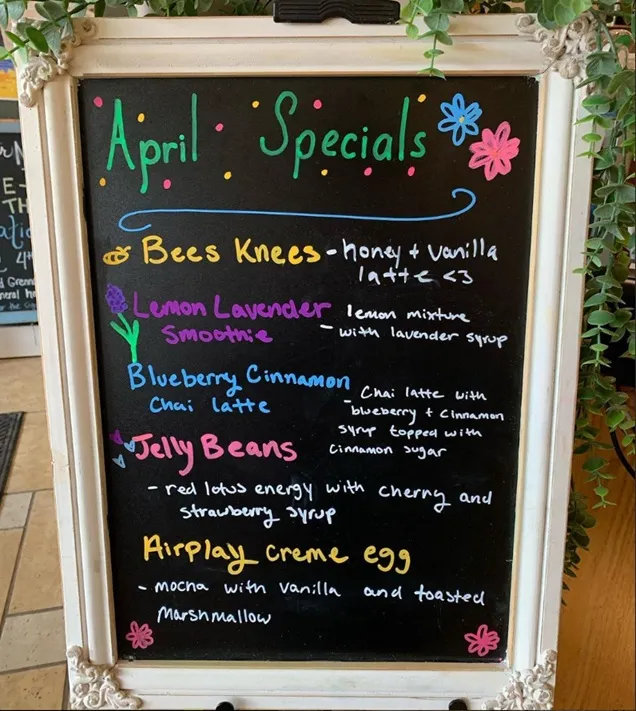 April Specials
Bees Knees - honey + vanilla
latte <3
Lemon Lavender
Smoothie
lemon mixture
- with lavender syrup
Blueberry Cinnamon
Chai latte
- Chai latte with
blueberry + cinnamon
syrup topped with
cinnamon sugar
Jelly Beans
- red lotus energy with cherry and
strawberry syrup
Airplay creme egg
- mocha with vanilla and toasted
marshmallow